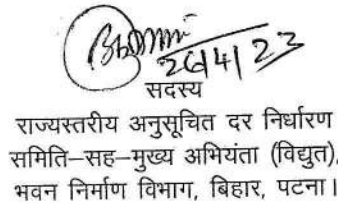 26/4/23
सदस्य
राज्यस्तरीय अनुसूचित दर निर्धारण
समिति–सह–मुख्य अभियंता (विद्युत),
भवन निर्माण विभाग, बिहार, पटना।